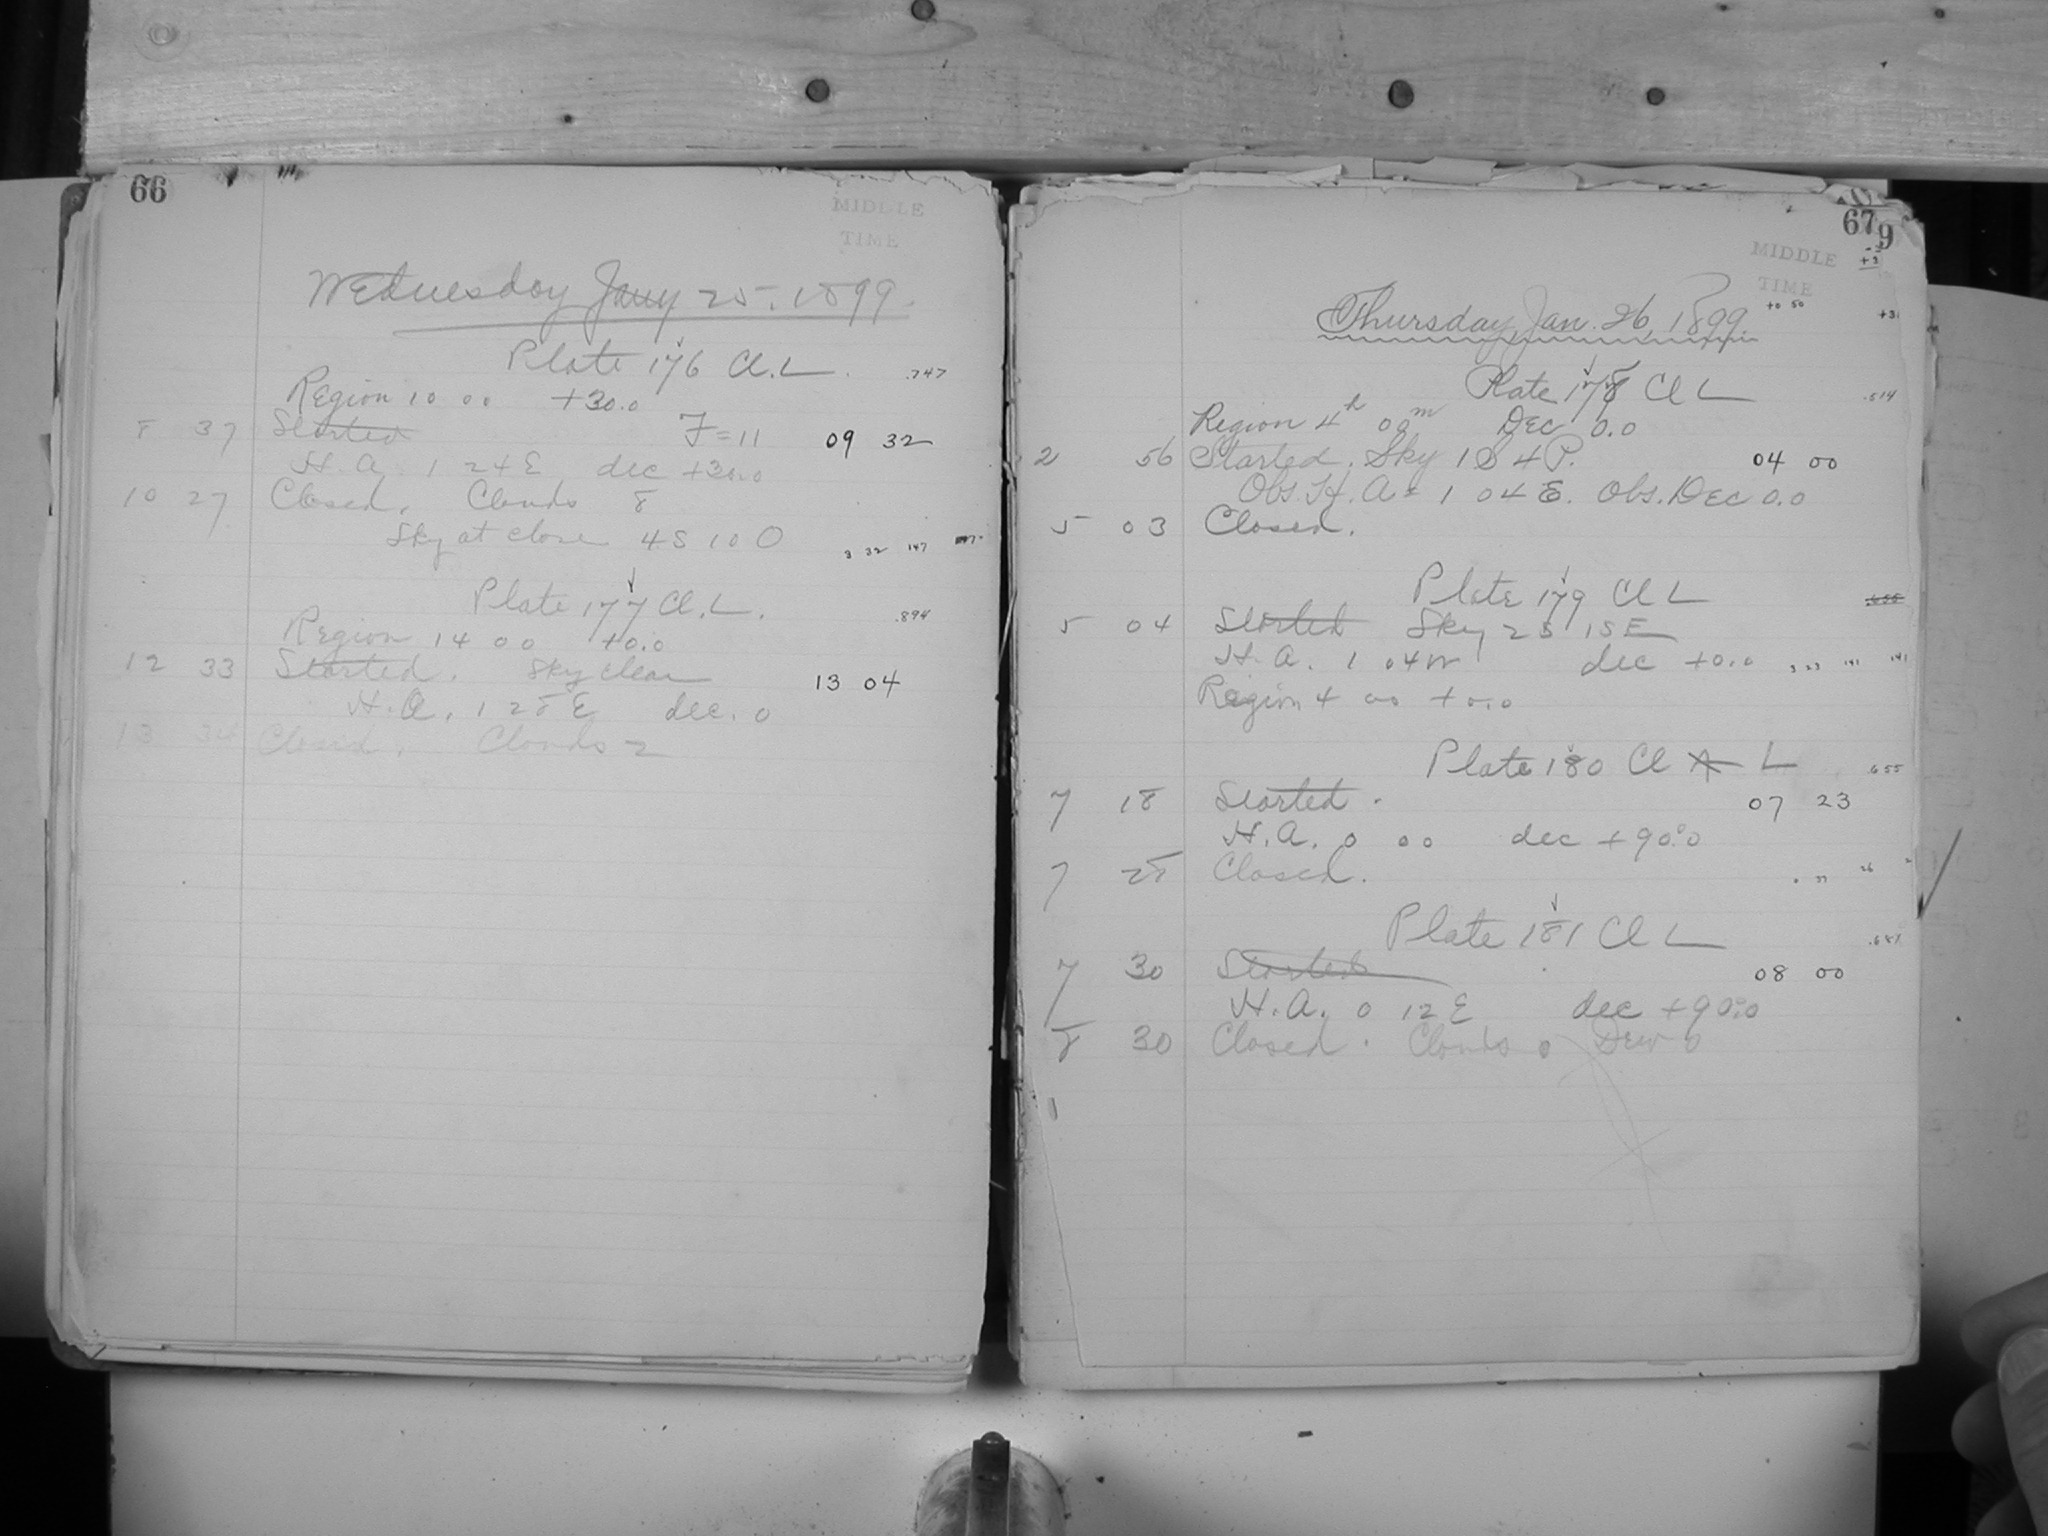 66
MIDDLE
TIME
Wednesday Jany 25. 1899.
Plate 176 Cl. L. .747
Region 10 00 +30.0
8 37 Started F=11 09 32
H.A. 1 24 E dec +30.0
10 27 Closed. Clouds 8
Sky at close 4 S 10 O
3 32 147
Plate 177 Cl. L. .894
Region 14 00 +0.0
12 33 Started. Sky clear 13 04
H.A. 1 28 E dec. 0
13 34 Closed. Clouds 2
67
9
MIDDLE
TIME
+0 50
Thursday, Jan. 26, 1899.
Plate 178 Cl L .514
Region 4h 00m Dec 0.0
2 56 Started. Sky 1 S 4 P. 04 00
Obs. H. A = 1 04 E. Obs. Dec 0.0
5 03 Closed.
Plate 179 Cl L .655
5 04 Started Sky 2 S 1 S E
H. A. 1 04 W dec +0.0 3 23 141 141
Region 4 00 +0.0
Plate 180 Cl A L .655
7 18 Started. 07 23
H.A. 0 00 dec +90.0
7 28 Closed.
Plate 181 Cl L .681
7 30 Started 08 00
H.A. 0 12 E dec +90.0
8 30 Closed. Clouds 0 Dew 0